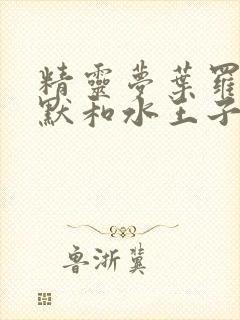 精靈夢葉羅
默和水王子
魯浙冀